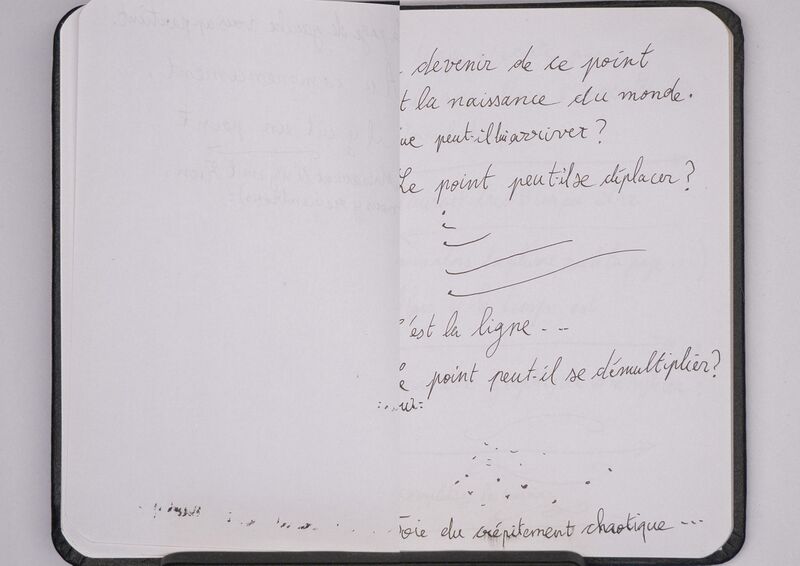 devenir de ce point
t la naissance du monde.
ue peut-il lui arriver ?
Le point peut-il se déplacer ?
c'est la ligne - - -
e point peut-il se démultiplier ?
oie du crépitement chaotique - - -